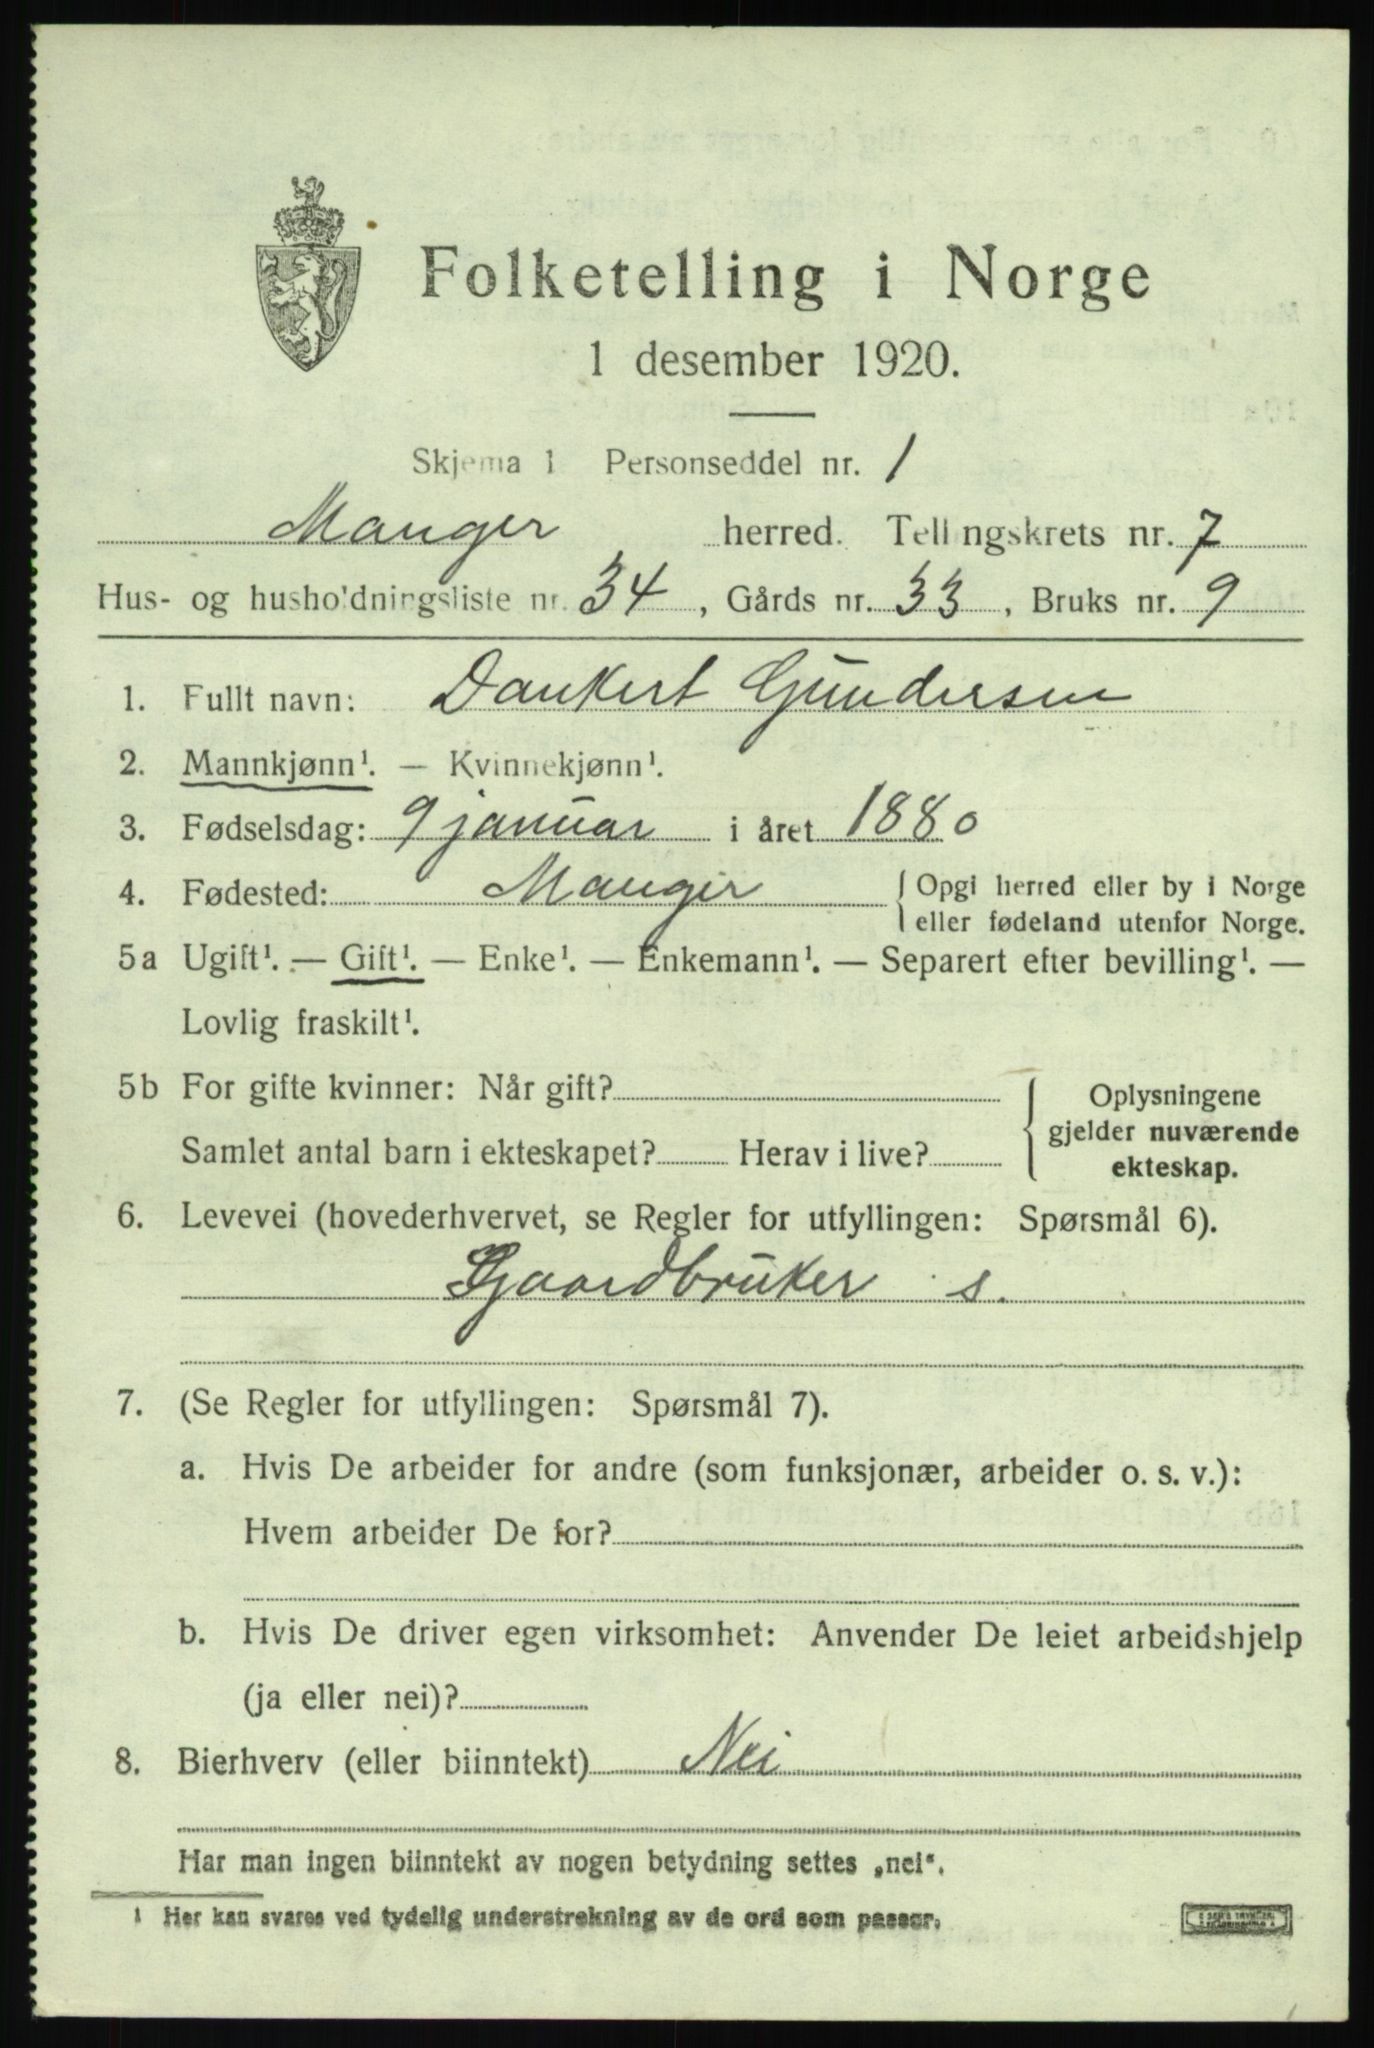 Folketelling i Norge
1 desember 1920.
Skjema 1 Personseddel nr. 1
Manger herred. Tellingskrets nr. 7
Hus- og husholdningsliste nr. 34, Gårds nr. 33, Bruks nr. 9
1. Fullt navn: Dankert Gundersen
2. Mannkjønn¹. — Kvinnekjønn¹.
3. Fødselsdag: 9 januar i året 1880
4. Fødested: Manger { Opgi herred eller by i Norge
eller fødeland utenfor Norge.
5a Ugift¹. — Gift¹. — Enke¹. — Enkemann¹. — Separert efter bevilling¹. —
Lovlig fraskilt¹.
5b For gifte kvinner: Når gift? { Oplysningene
gjelder nuværende
Samlet antal barn i ekteskapet? Herav i live?
ekteskap.
6. Levevei (hovederhvervet, se Regler for utfyllingen: Spørsmål 6).
Gaardbruker s.
7. (Se Regler for utfyllingen: Spørsmål 7).
a. Hvis De arbeider for andre (som funksjonær, arbeider o. s. v.):
Hvem arbeider De for?
b. Hvis De driver egen virksomhet: Anvender De leiet arbeidshjelp
(ja eller nei)?
8. Bierhverv (eller biinntekt) Nei
Har man ingen biinntekt av nogen betydning settes „nei“.
1 Her kan svares ved tydelig understrekning av de ord som passer.